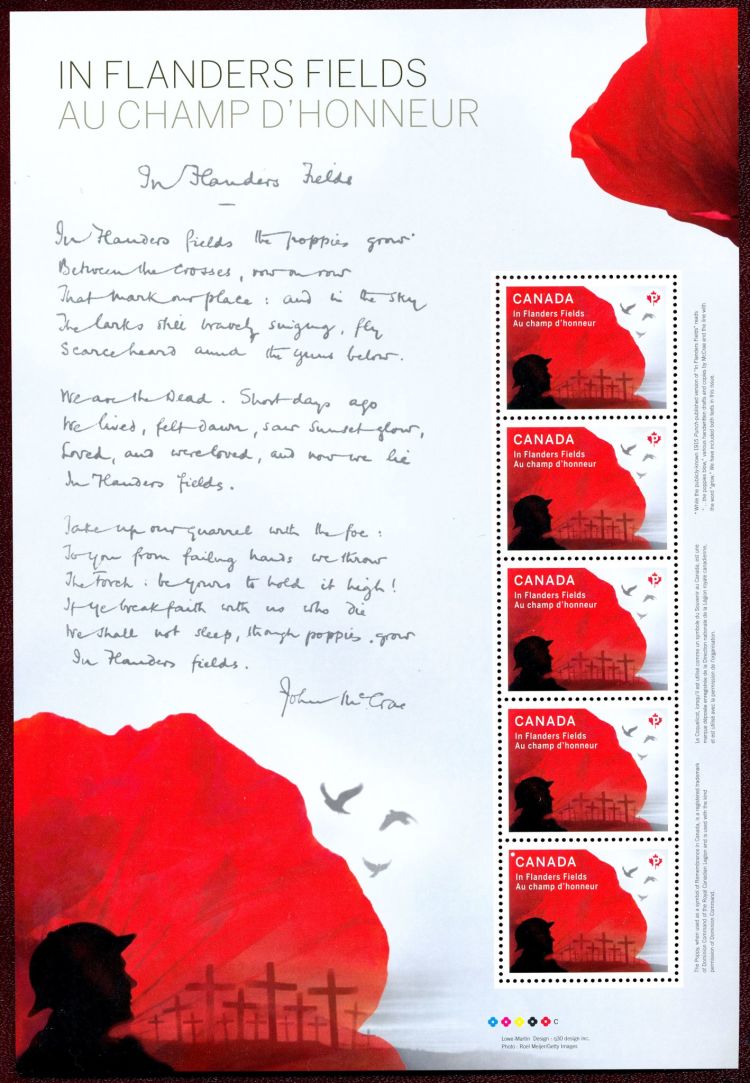 IN FLANDERS FIELDS
AU CHAMP D'HONNEUR
In Flanders Fields
In Flanders fields the poppies grow
Between the crosses, row on row
That mark our place: and in the sky
The larks still bravely singing, fly
Scarce heard amid the guns below.
We are the Dead. Short days ago
We lived, felt dawn, saw sunset glow,
Loved, and were loved, and now we lie
In Flanders fields.
Take up our quarrel with the foe:
To you from failing hands we throw
The Torch: be yours to hold it high!
If ye break faith with us who die
We shall not sleep, though poppies grow
In Flanders fields.
John McCrae
CANADA
P
In Flanders Fields
Au champ d'honneur
CANADA
P
In Flanders Fields
Au champ d'honneur
CANADA
P
In Flanders Fields
Au champ d'honneur
CANADA
P
In Flanders Fields
Au champ d'honneur
CANADA
P
In Flanders Fields
Au champ d'honneur
"While the publicly-known 1915 Punch-published version of "In Flanders Fields" reads
"... the poppies blow," various handwritten drafts and copies by McCrae end the line with
the word "grow." We have included both texts in this issue.
Le Coquelicot, lorsqu'il est utilisé comme un symbole du Souvenir au Canada, est une
marque déposée enregistrée de la Direction nationale de la Légion royale canadienne,
et est utilisé avec la permission de l'organisation.
The Poppy, when used as a symbol of Remembrance in Canada, is a registered trademark
of Dominion Command of the Royal Canadian Legion and is used with the kind
permission of Dominion Command.
C
Lowe-Martin Design : q30 design inc.
Photo : Roel Meijer/Getty Images